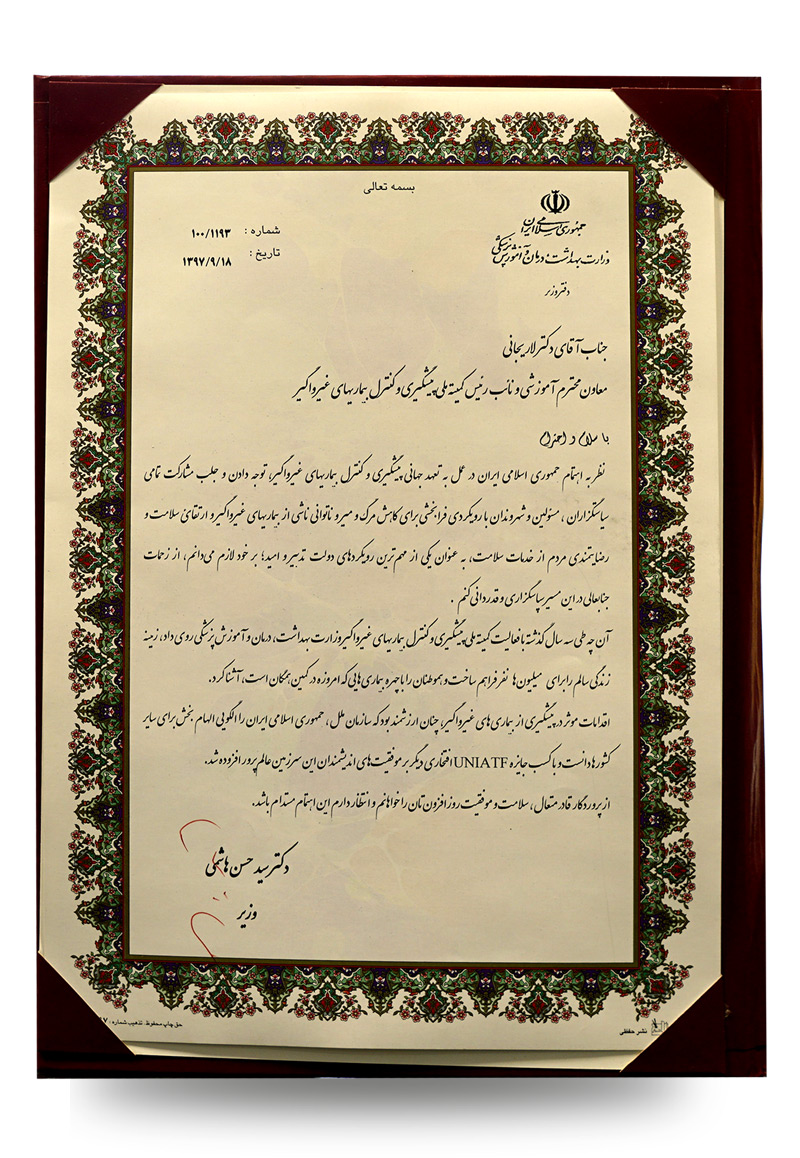 بسمه تعالی
جمهوری اسلامی ایران
وزارت بهداشت، درمان و آموزش پزشکی
دفتر وزیر
شماره : ۱۰۰/۱۱۹۳
تاریخ : ۱۳۹۷/۹/۱۸
جناب آقای دکتر لاریجانی
معاون محترم آموزشی و نائب رئیس کمیته ملی پیشگیری و کنترل بیماریهای غیرواگیر
با سلام و احترام
نظر به اهتمام جمهوری اسلامی ایران در عمل به تعهد جهانی پیشگیری و کنترل بیماریهای غیرواگیر؛ توجه دادن و جلب مشارکت تمامی
سیاستگزاران ، مسئولین و شهروندان با رویکردی فرابخشی برای کاهش مرگ و میر و ناتوانی ناشی از بیماریهای غیرواگیر و ارتقای سلامت و
رضایتمندی مردم از خدمات سلامت، به عنوان یکی از مهم‌ترین رویکردهای دولت تدبیر و امید؛ بر خود لازم می‌دانم، از زحمات
جنابعالی در این مسیر سپاسگزاری و قدردانی کنم .
آن چه طی سه سال گذشته با فعالیت کمیته ملی پیشگیری و کنترل بیماریهای غیرواگیر وزارت بهداشت، درمان و آموزش پزشکی روی داد، زمینه
زندگی سالم را برای میلیون‌ها نفر فراهم ساخت و هموطنان را با چهره بیماری هایی که امروزه در کمین همگان است، آشنا کرد.
اقدامات موثر در پیشگیری از بیماری های غیرواگیر، چنان ارزشمند بود که سازمان ملل ، جمهوری اسلامی ایران را الگویی الهام بخش برای سایر
کشورها دانست و با کسب جایزه UNIATF افتخاری دیگر بر موفقیت های اندیشمندان این سرزمین عالم پرور افزوده شد.
از پروردگار قادر متعال ، سلامت و موفقیت روز افزون تان را خواهانم و انتظار دارم این اهتمام مستدام باشد.
دکتر سید حسن هاشمی
وزیر
نشر حفظی
حق چاپ محفوظ. تذهیب شماره :